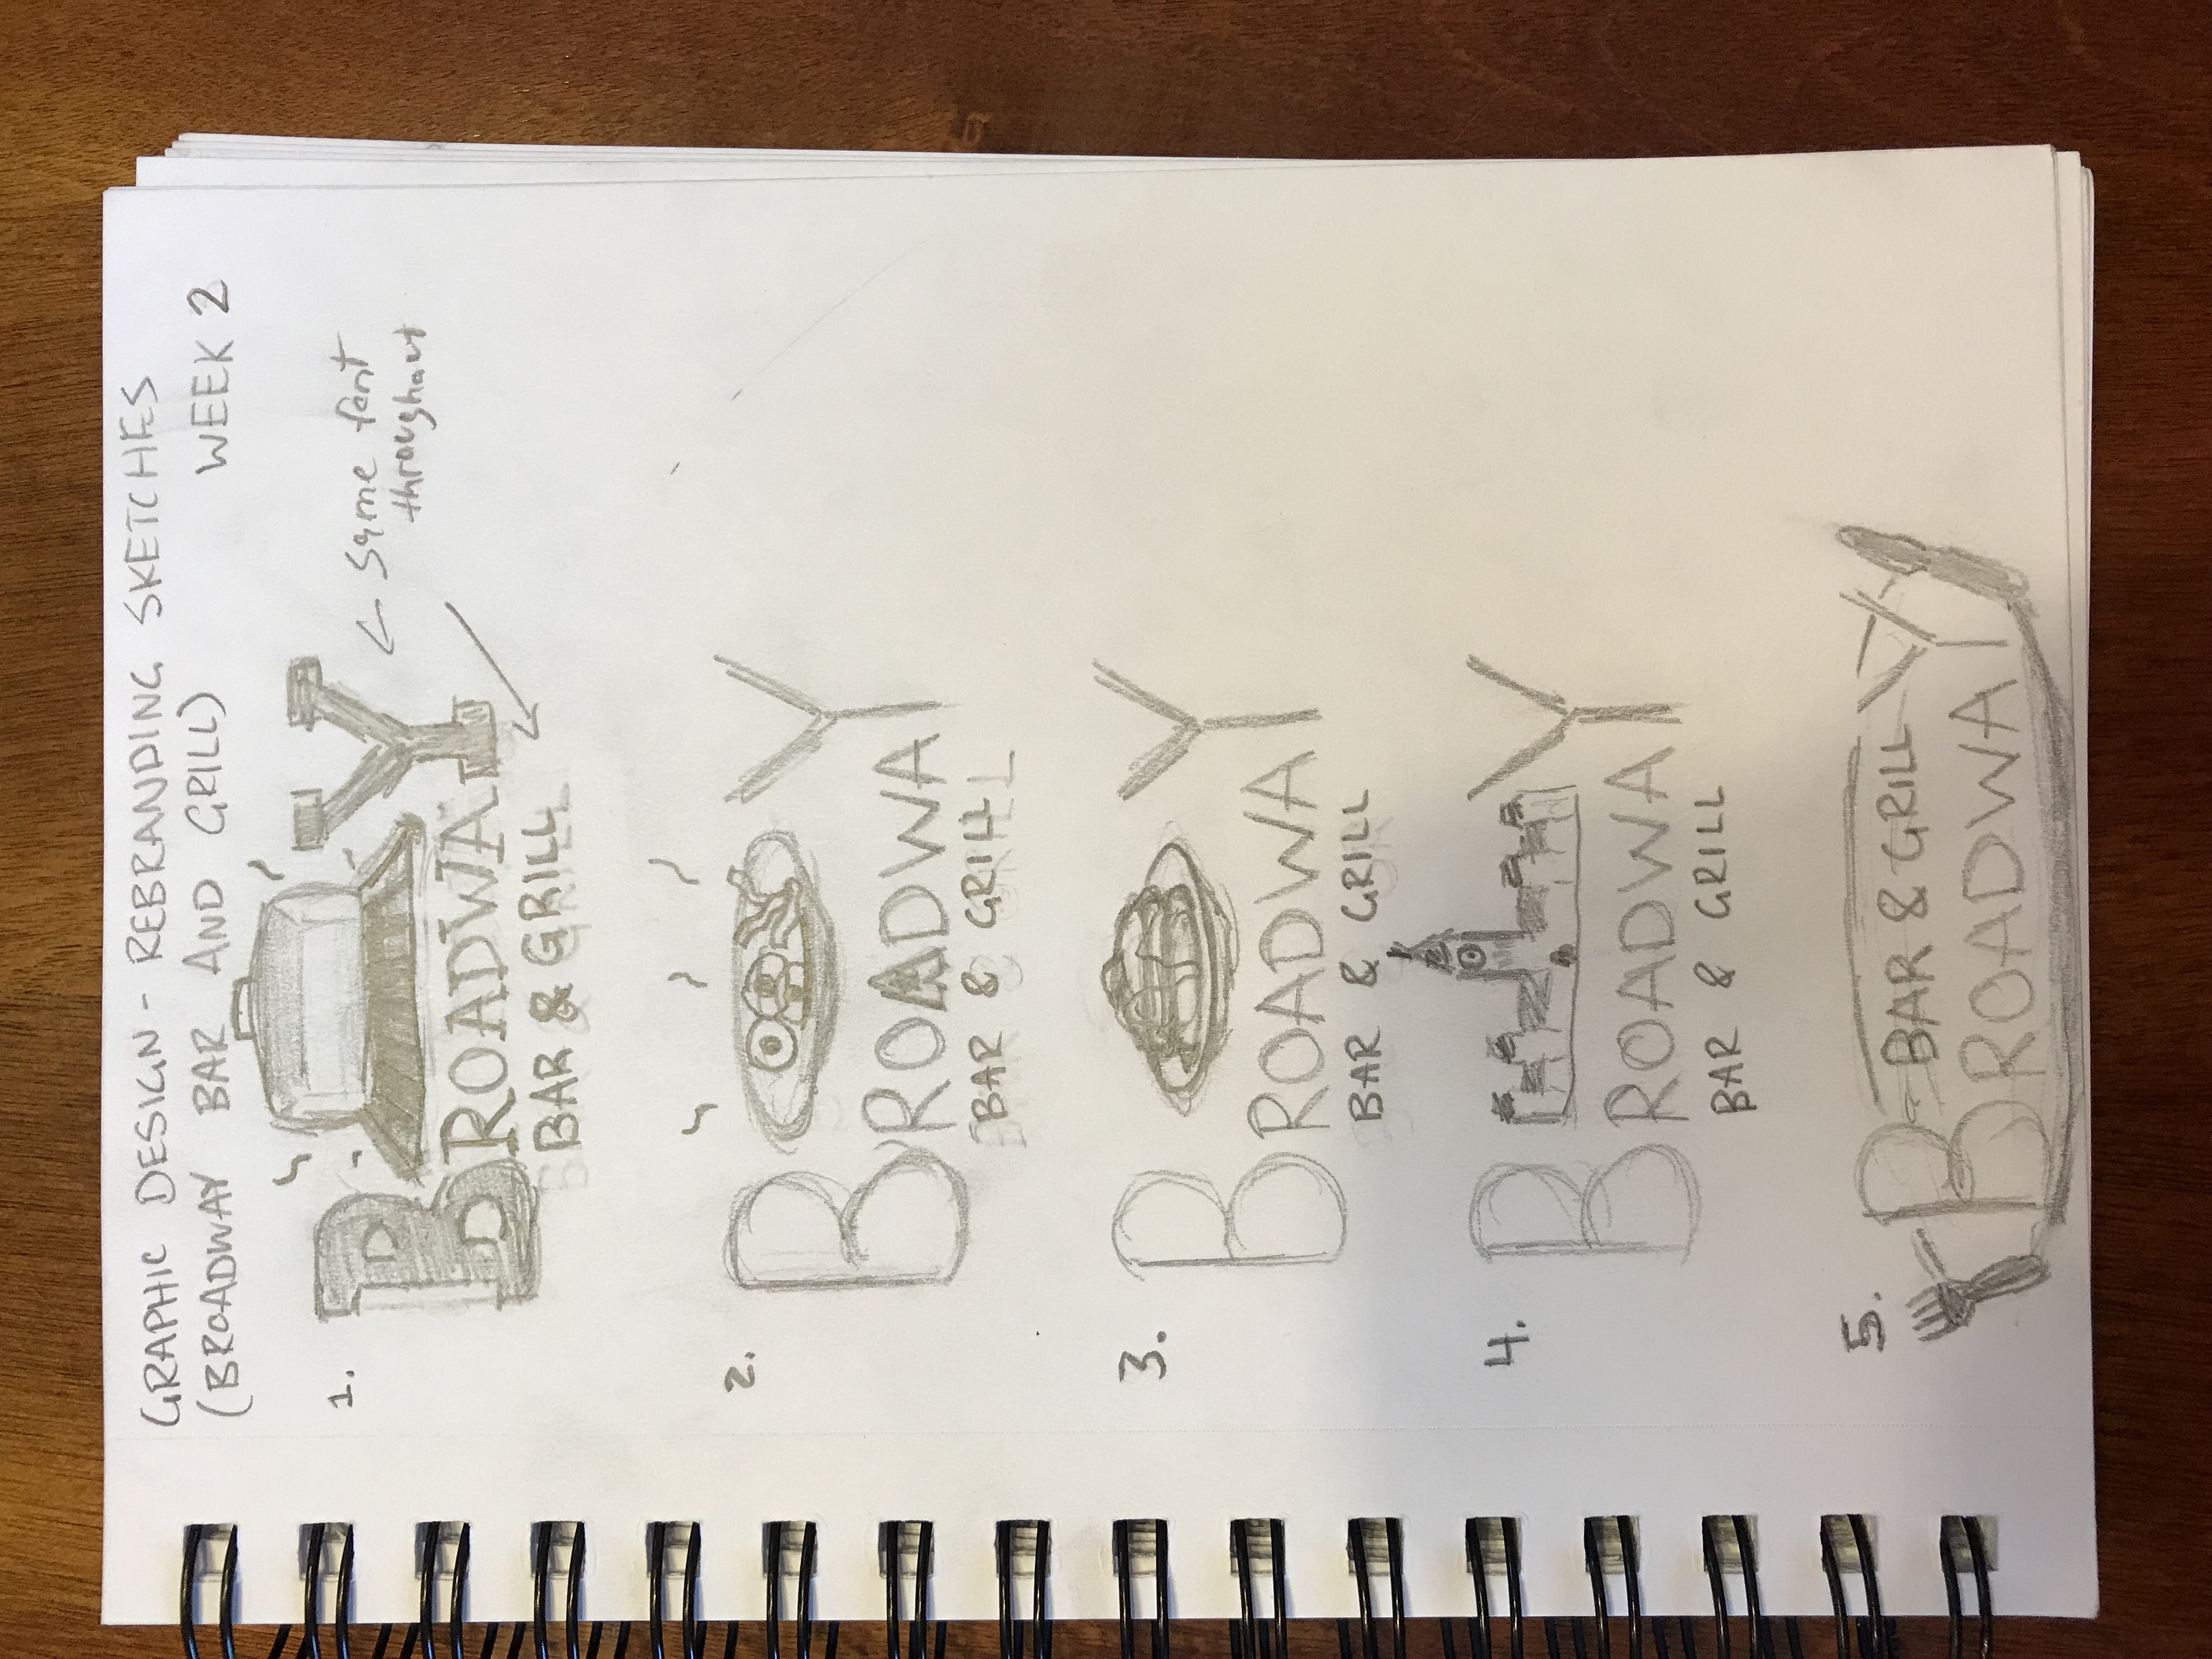 GRAPHIC DESIGN - REBRANDING SKETCHES
(BROADWAY BAR AND GRILL) WEEK 2
1.
BROADWAY
BAR & GRILL
← Same font
throughout
2.
BROADWAY
BAR & GRILL
3.
BROADWAY
BAR & GRILL
4.
BROADWAY
BAR & GRILL
5.
BAR & GRILL
BROADWAY